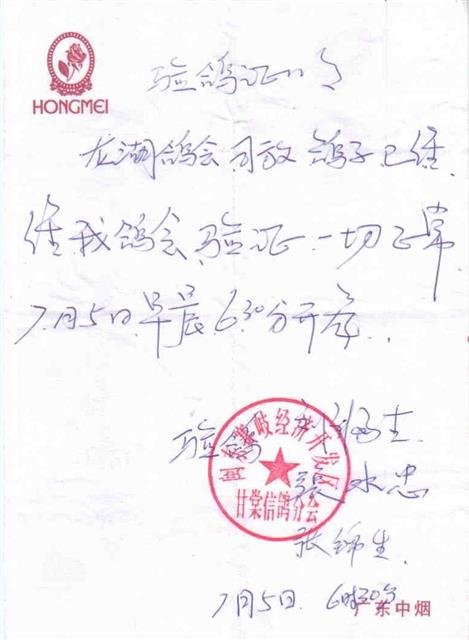 HONGMEI
验鸽证明
龙湖鸽会司放鸽子已经
经我鸽会验证一切正常
7月5日早晨6:30分开笼.
验鸽
经济开发区
甘棠信鸽分会
张水忠
张锦生
7月5日 6时30分
广东中烟